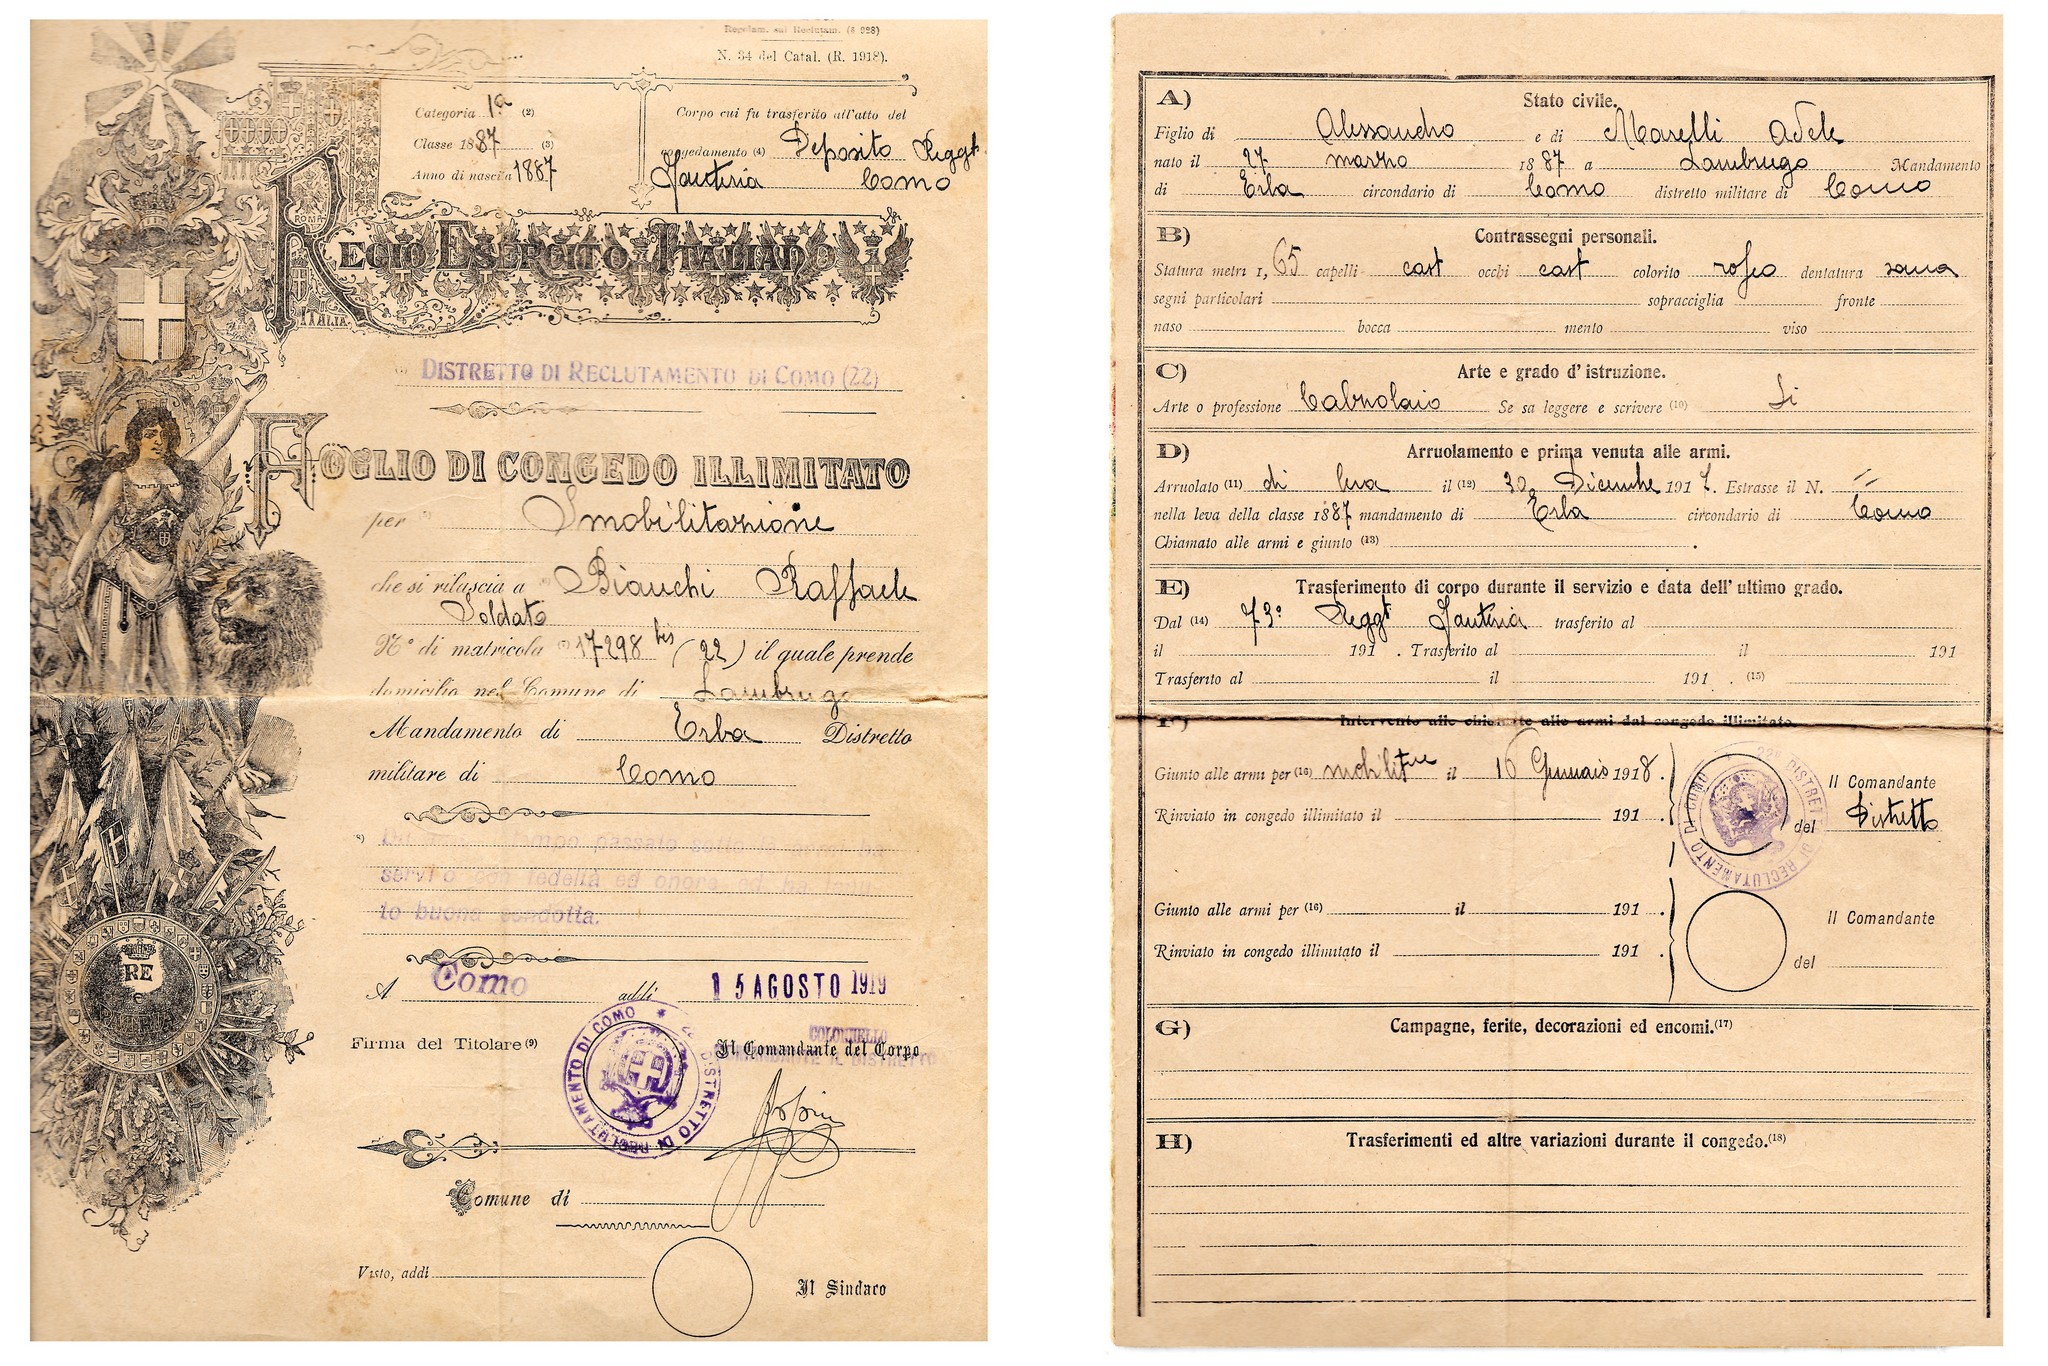 Regolam. sul Reclutam. (§ 928)
N. 34 del Catal. (R. 1918).
Categoria 1ª (2)
Classe 1887 (3)
Anno di nascita 1887
Corpo cui fu trasferito all'atto del
congedamento (4) Deposito Reggt
Fanteria Como
ROMA
REGIO ESERCITO ITALIANO
ITALIA
DISTRETTO DI RECLUTAMENTO DI COMO (22)
FOGLIO DI CONGEDO ILLIMITATO
per Smobilitazione
che si rilascia a Bianchi Raffaele
Soldato
N° di matricola 17298 bis (22) il quale prende
domicilio nel Comune di Lambrugo
Mandamento di Erba Distretto
militare di Como
(8) tempo passato sotto ha
servito con fedeltà ed onore ed ha tenu-
to buona condotta.
A Como addì 15 AGOSTO 1919
Firma del Titolare (9)
COLONNELLO
Il Comandante del Corpo
COMANDANTE IL DISTRETTO
DISTRETTO DI RECLUTAMENTO DI COMO
RE
e
PATRIA
Comune di
Visto, addì
Il Sindaco
A) Stato civile.
Figlio di Alessandro e di Marelli Adele
nato il 27 marzo 1887 a Lambrugo Mandamento
di Erba circondario di Como distretto militare di Como
B) Contrassegni personali.
Statura metri 1,65 capelli cast occhi cast colorito roseo dentatura sana
segni particolari sopracciglia fronte
naso bocca mento viso
C) Arte e grado d'istruzione.
Arte o professione Calzolaio Se sa leggere e scrivere (10) Si
D) Arruolamento e prima venuta alle armi.
Arruolato (11) di leva il (12) 30 Dicembre 1917. Estrasse il N. =
nella leva della classe 1887 mandamento di Erba circondario di Como
Chiamato alle armi e giunto (13) .
E) Trasferimento di corpo durante il servizio e data dell'ultimo grado.
Dal (14) 73° Reggt Fanteria trasferito al
il 191 . Trasferito al il 191
Trasferito al il 191 . (15)
F) Intervento alle chiamate alle armi dal congedo illimitato.
Giunto alle armi per (16) mobilit.ne il 16 Gennaio 1918.
Il Comandante
Rinviato in congedo illimitato il 191 .
del Distretto
22° DISTRETTO DI RECLUTAMENTO DI COMO
Giunto alle armi per (16) il 191 .
Il Comandante
Rinviato in congedo illimitato il 191 .
del
G) Campagne, ferite, decorazioni ed encomi. (17)
H) Trasferimenti ed altre variazioni durante il congedo. (18)